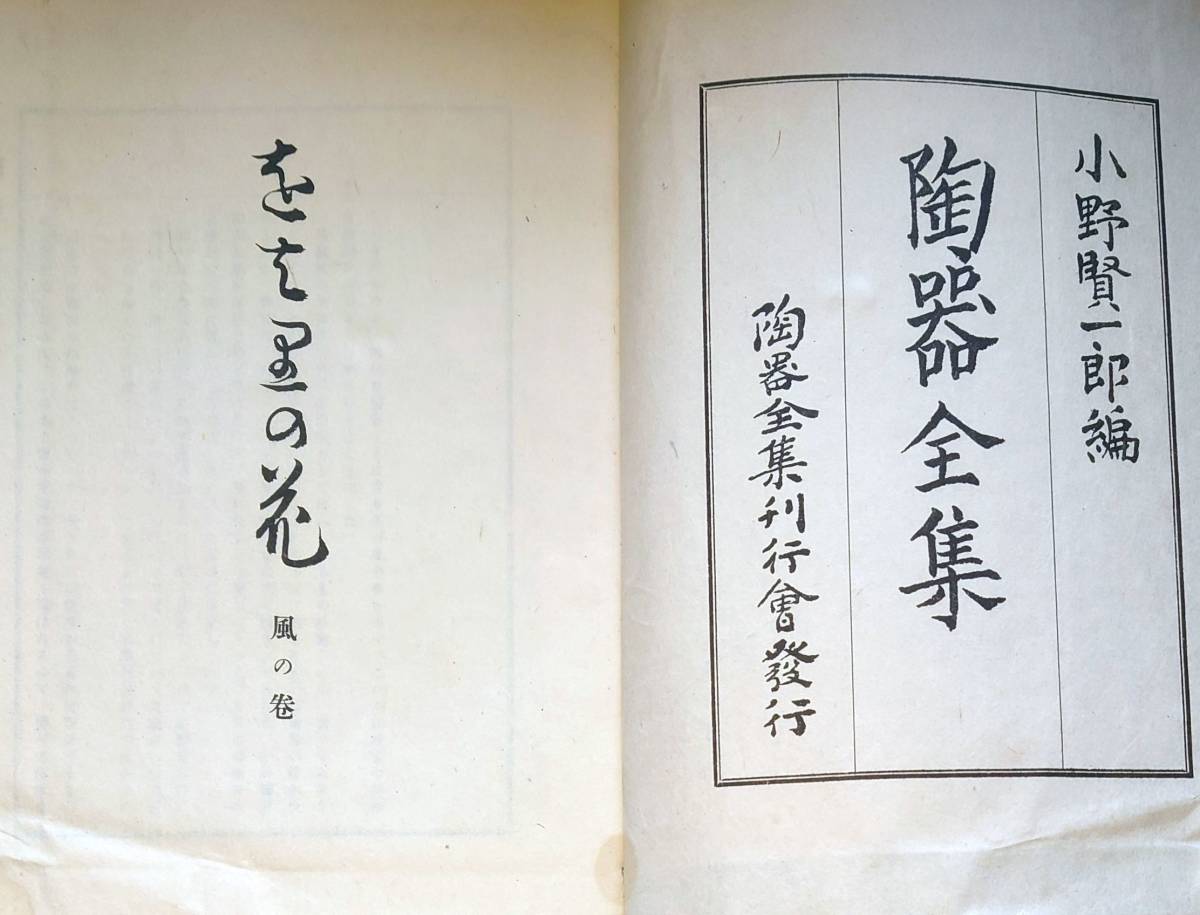 小野賢一郎編
陶器全集
陶器全集刊行會發行
をは里の花
風の卷